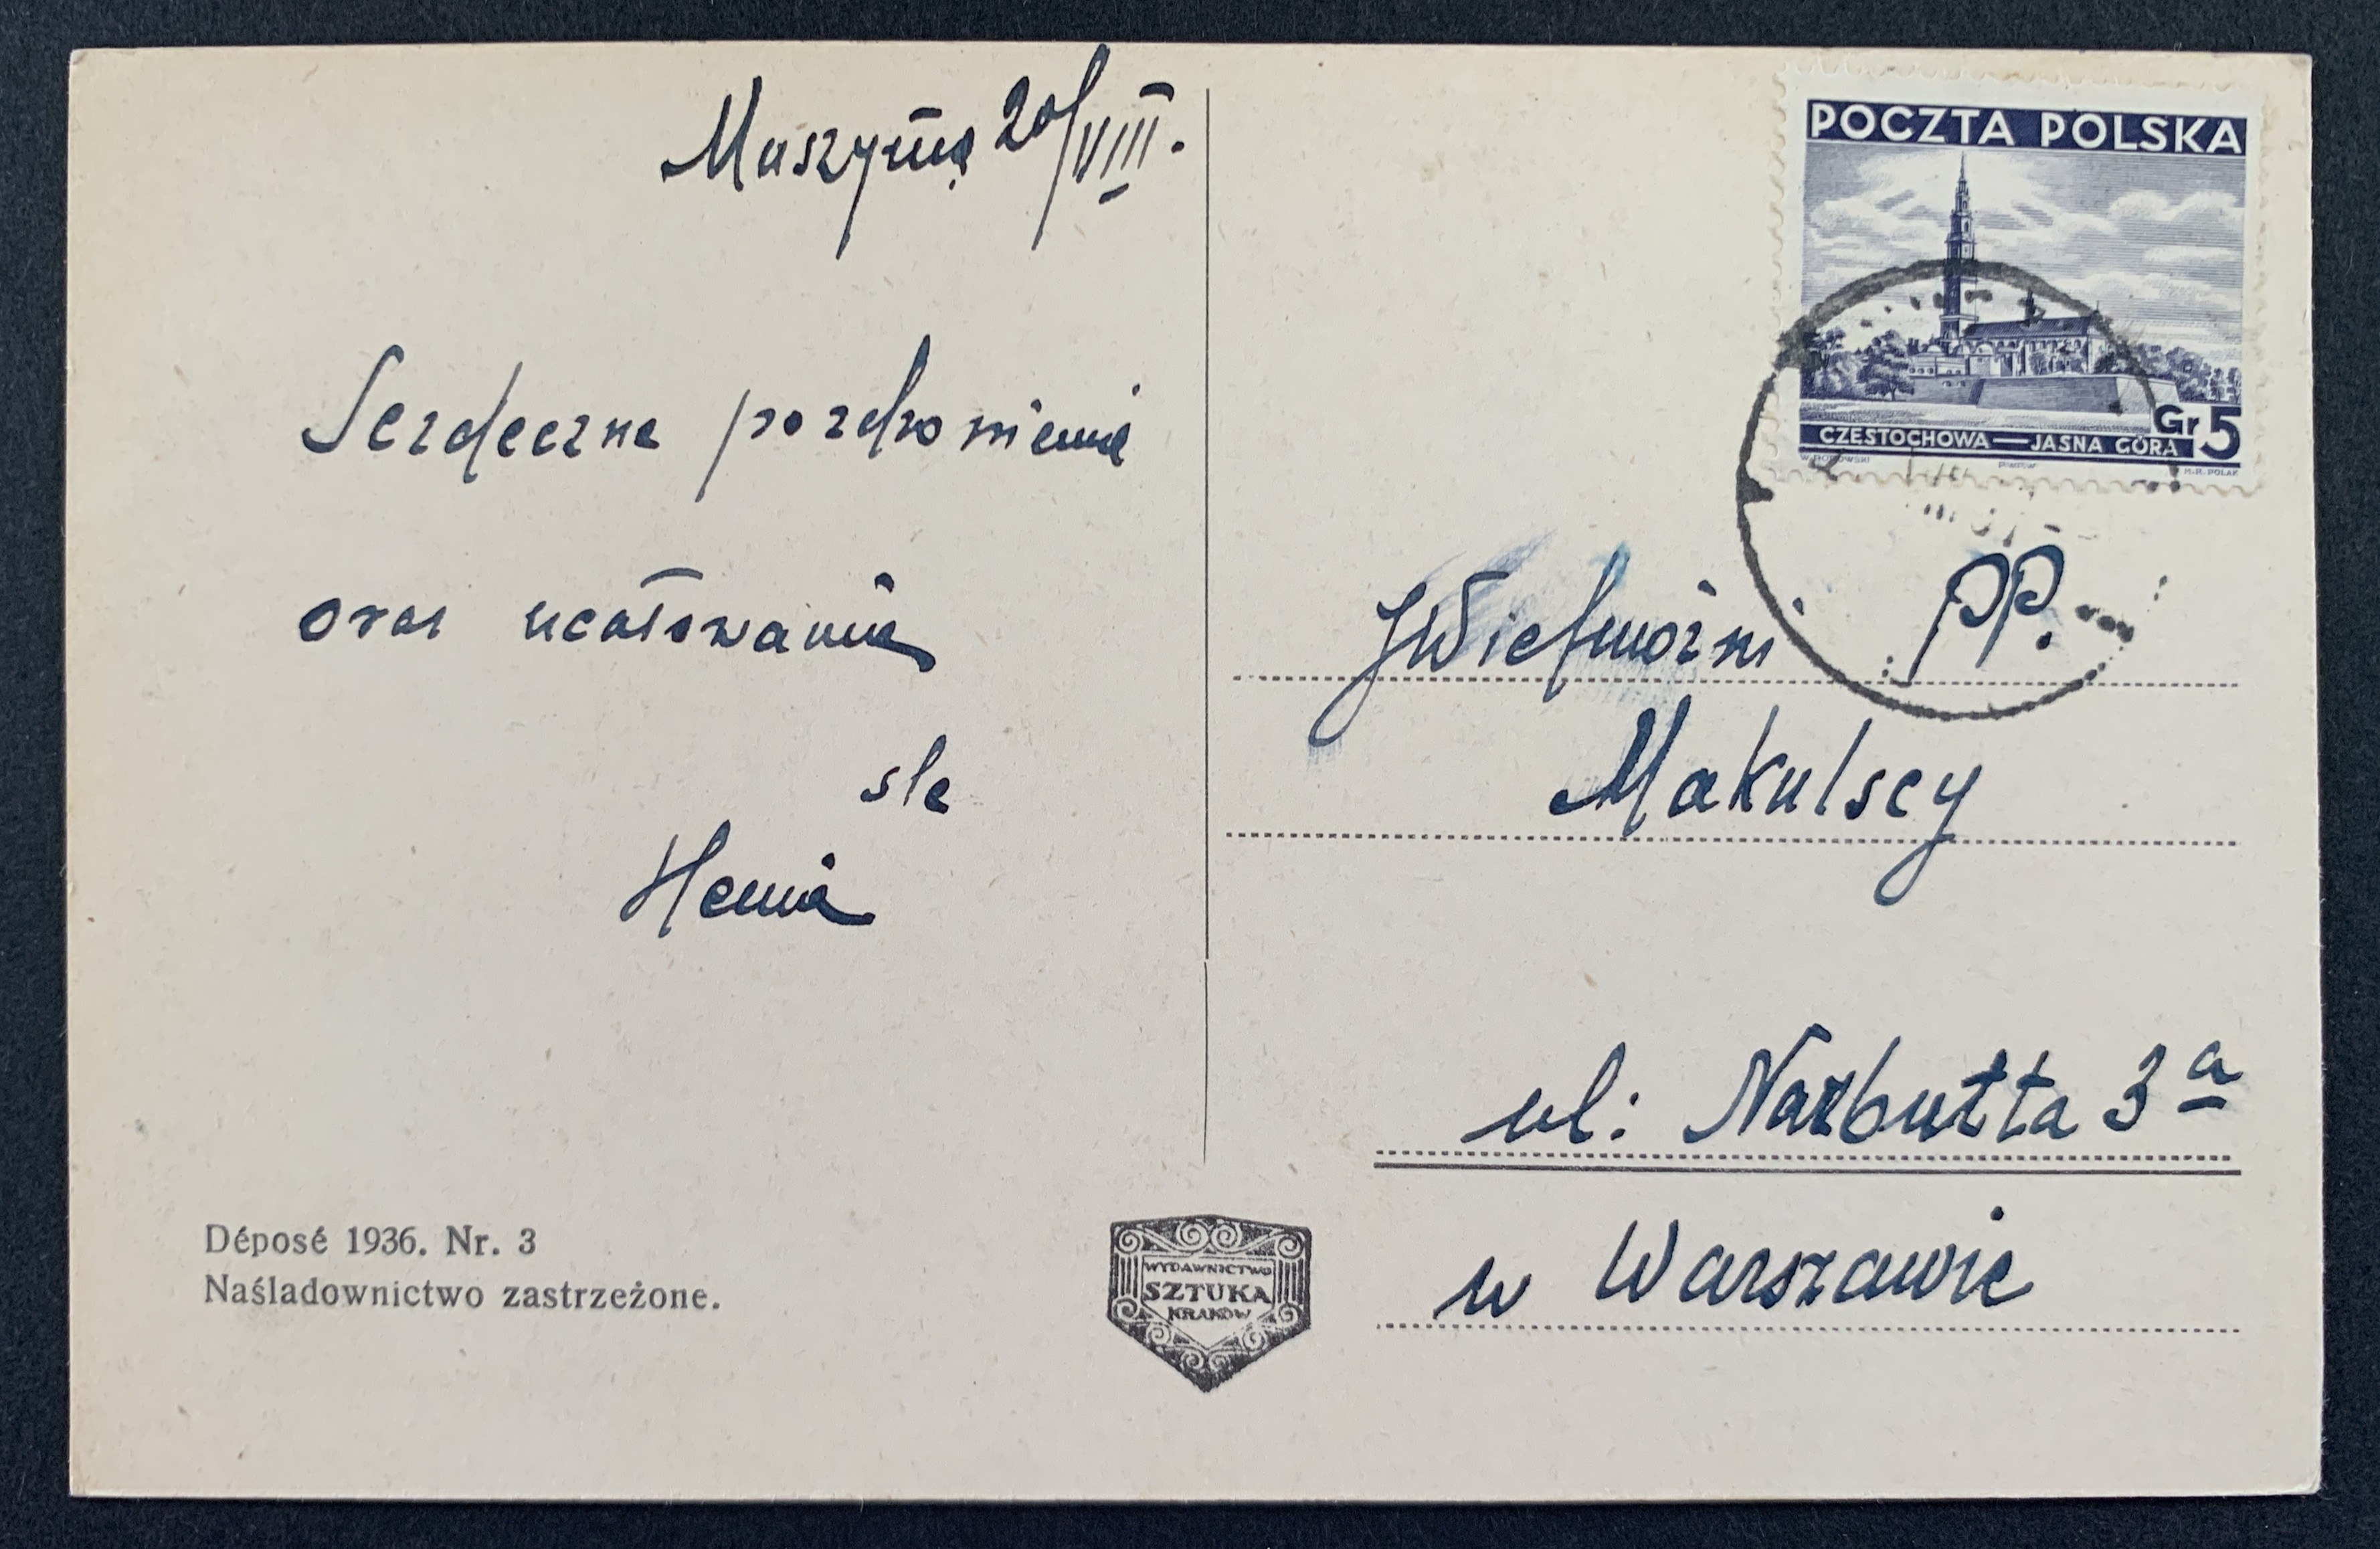 Muszyna 20/VIII.
Serdeczne pozdrowienia
oraz ucałowania
śle
Henia
Déposé 1936. Nr. 3
Naśladownictwo zastrzeżone.
WYDAWNICTWO
SZTUKA
KRAKÓW
POCZTA POLSKA
Gr 5
CZĘSTOCHOWA — JASNA GÓRA
JWielmożni PP.
Makulscy
ul: Narbutta 3a
w Warszawie